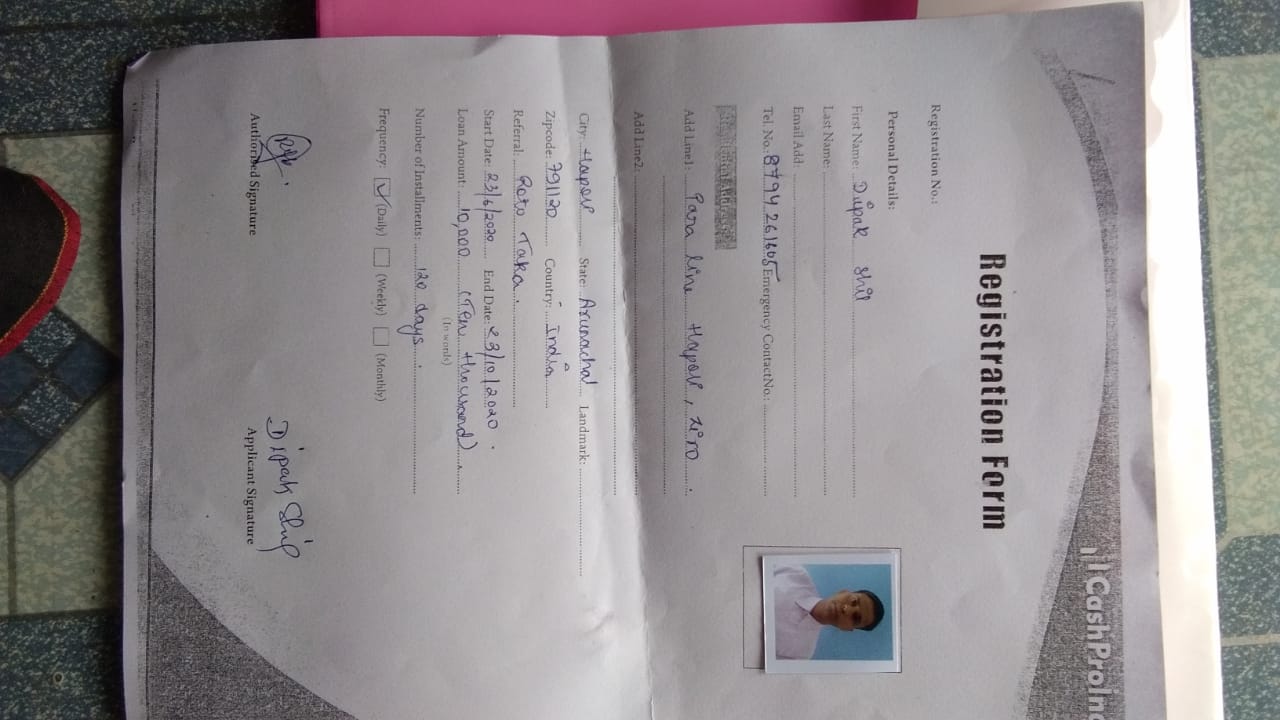 CashProInd
Registration Form
Registration No.:
Personal Details:
First Name: Dipak Shil
Last Name:
Email Add:
Tel. No.: 8794261605 Emergency Contact No.:
Add Line1: Para line Hapoli, Ziro
Add Line2:
City: Hapoli State: Arunachal Landmark:
Zipcode: 791120 Country: India
Referral: Roto Taka.
Start Date: 23/6/2020 End Date: 23/10/2020.
Loan Amount: 10,000 (Ten thousand)
(In words)
Number of Installments: 120 days.
Frequency: ✓ (Daily) (Weekly) (Monthly)
Dipak Shil
Authorised Signature Applicant Signature